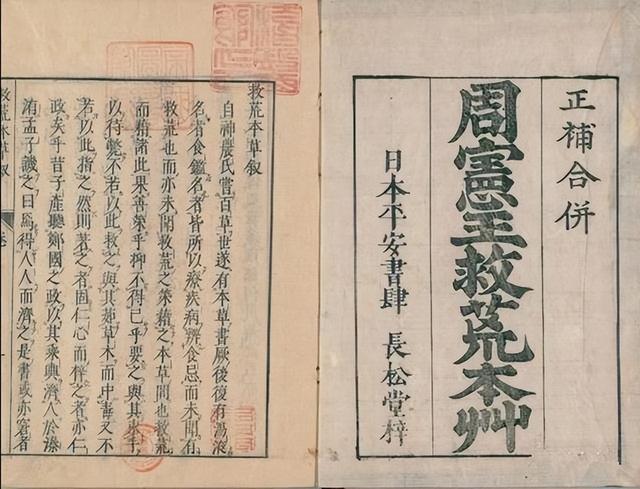 正補合併
周憲王救荒本艸
日本平安書肆 長松堂梓
救荒本草叙
自神農氏嘗百草世遂有本草書厥後復有
名者食鑑名者皆所以療疾病辨食忌而未聞有
救荒也而亦未聞救荒之筞藉之本草間也救荒
而藉諸此果善筞乎抑不得已乎要之與其束手
以待斃不若以此救之與其茹草木而中毒又不
若以此指之然則著之者固仁心而梓之者亦仁
政矣乎昔子産聽鄭國之政以其乘輿濟人於溱
洧孟子譏之曰焉得人人而濟之是書或亦窮者
救荒本草叙